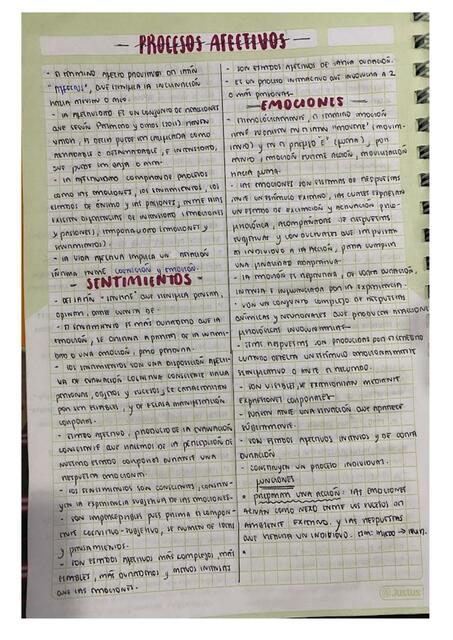 PROCESOS AFECTIVOS
- El término afecto proviene del latín
"affectus", que significa la inclinación
hacia alguien o algo.
- La afectividad es un conjunto de reacciones
que según Palomino y otros (2011) tienen
valor, es decir puede ser calificada como
agradable o desagradable e intensidad,
que puede ser baja o alta.
- La afectividad comprende procesos
como las emociones, los sentimientos, los
estados de ánimo y las pasiones, entre ellos
existen diferencias de intensidad (emociones
y pasiones), temporalidad (emociones y
sentimientos).
- La vida afectiva implica una relación
íntima entre cognición y emoción.
SENTIMIENTOS
- Del latín "sentire" que significa pensar,
opinar, darse cuenta de.
- El sentimiento es más duradero que la
emoción, se origina a partir de la
o una emoción, pero perdura.
- Los sentimientos son una disposición afecti-
va de evaluación cognitiva consciente hacia
personas, objetos y sucesos, se caracterizan
por ser estables, y de escasa manifestación
corporal.
- Estado afectivo, producto de la evaluación
consciente que hacemos de la percepción de
nuestro estado corporal durante una
respuesta emocional.
- Los sentimientos son conscientes, constitu-
yen la experiencia subjetiva de las emociones.
- Son imperceptibles pues prima el compo-
nente cognitivo-subjetivo, se nutren de ideas
y pensamientos.
- Son estados afectivos más complejos, más
estables, más duraderos y menos intensos
que las emociones.
- Son estados afectivos de larga duración.
- Es un proceso que involucra a 2
o más personas.
EMOCIONES
- Etimológicamente, el término emoción
tiene su origen en el latín "movere" (movi-
miento) y en el prefijo e- (fuera), por
tanto, emoción supone acción, movilización
hacia fuera.
- Las emociones son sistemas de respuestas
ante un estímulo externo, las cuales expresan
un estado de excitación y activación fisio-
lógica, acompañadas de respuestas
subjetiva y con conductas que impulsan
al individuo a la acción, para cumplir
una finalidad adaptativa.
- La emoción es repentina, de corta duración,
intensa e influenciada por la experiencia.
- Son un conjunto complejo de respuestas
químicas y neuronales que producen reacciones
fisiológicas involuntarias.
- Estas respuestas son producidas por el cerebro
cuando detecta un estímulo emocionalmente
- Son visibles, se exteriorizan mediante
expresiones corporales.
- Surgen ante una situación que aparece
súbitamente.
- Son estados afectivos intensos y de corta
duración
- Constituyen un proceso individual.
Funciones
• Preparan una acción: Las emociones
actúan como nexo entre los sucesos del
ambiente externo, y las respuestas
que realiza un individuo. Ejm: miedo → huir.
•
Justus